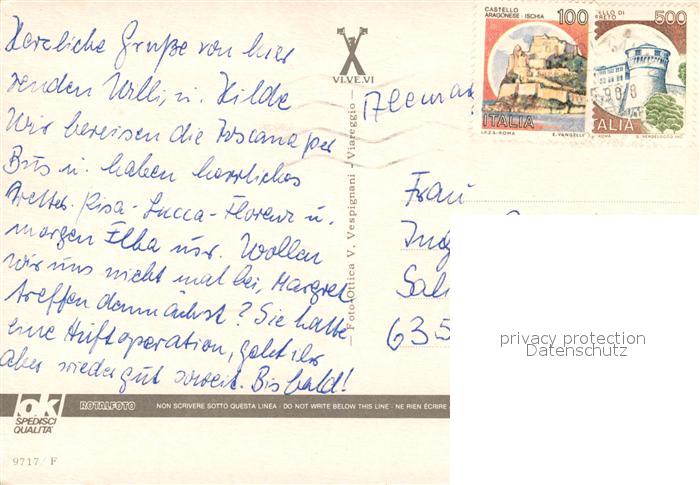 Herzliche Grüße von hier
senden Willi u. Hilde
Wir bereisen die Toscana per
Bus u. haben herrliches
Wetter. Pisa - Lucca - Florenz u.
morgen Elba usw. Wollen
wir uns nicht mal bei Margret
treffen demnächst? Sie hatte
eine Hüftoperation, geht ihr
aber wieder gut soweit. Bis bald!
VI.VE.VI
Foto Ottica V. Vespignani - Viareggio
CASTELLO
ARAGONESE - ISCHIA
100
ITALIA
I.P.Z.S. - ROMA E. VANGELLI
500
ALIA
Frau
Ing
Sal
635
privacy protection
Datenschutz
ok
SPEDISCI
QUALITÀ
ROTALFOTO
NON SCRIVERE SOTTO QUESTA LINEA - DO NOT WRITE BELOW THIS LINE - NE RIEN ÉCRIRE
9717 / F